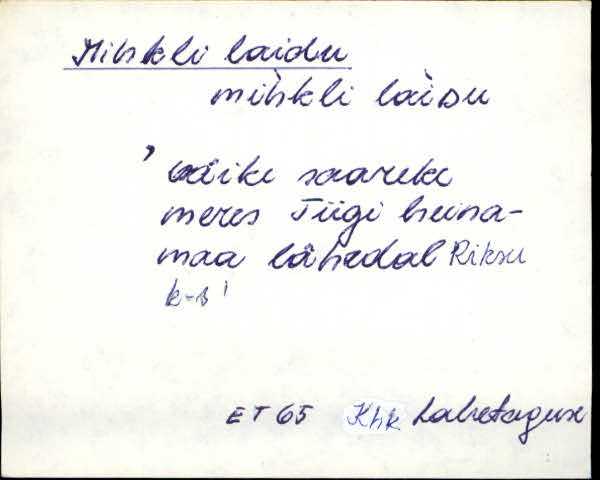 Mihkli laidu
mìhkli làiDu
, väike saareke
meres Tiigi heina-
maa lähedal Riksu
k-s'
ET 65 Khk Lahetaguse